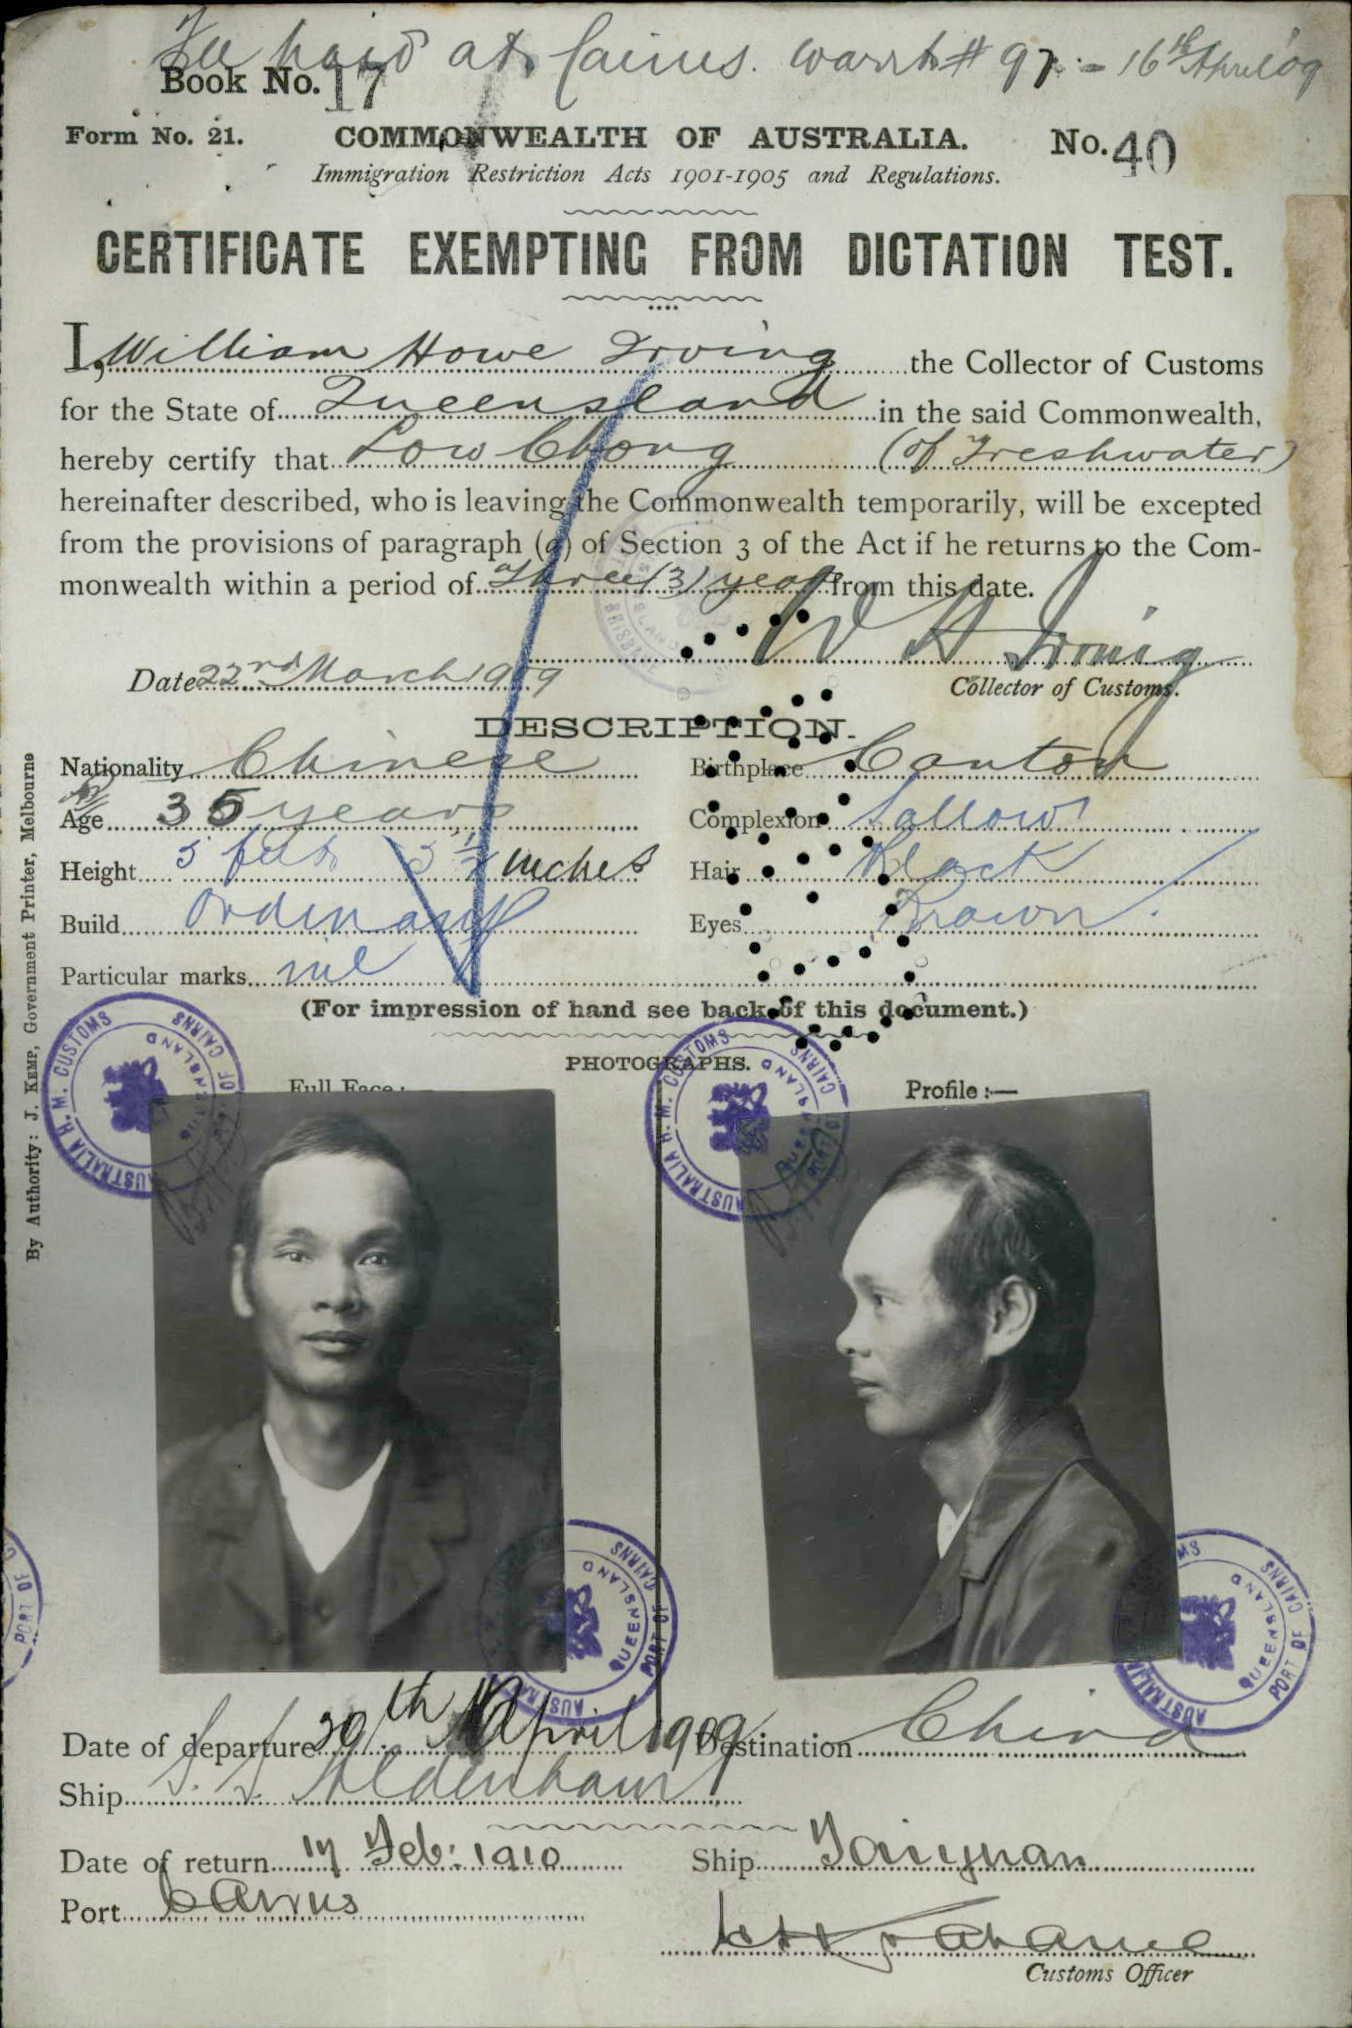 Fee paid at Cairns. warrt # 97 - 16th April 09
Book No. 17
Form No. 21. COMMONWEALTH OF AUSTRALIA. No. 40
Immigration Restriction Acts 1901-1905 and Regulations.
CERTIFICATE EXEMPTING FROM DICTATION TEST.
I, William Howe Irving the Collector of Customs
for the State of Queensland in the said Commonwealth,
hereby certify that Low Chong (of Freshwater)
hereinafter described, who is leaving the Commonwealth temporarily, will be excepted
from the provisions of paragraph (a) of Section 3 of the Act if he returns to the Com-
monwealth within a period of Three (3) years from this date.
W H Irving
Date 22nd March 1909 Collector of Customs.
DESCRIPTION.
Nationality Chinese Birthplace Canton
Age 35 years Complexion Sallow
Height 5 feet 3 1/2 inches Hair Black
Build Ordinary Eyes Brown
Particular marks nil
(For impression of hand see back of this document.)
PHOTOGRAPHS.
Full Face :— Profile :—
AUSTRALIA H. M. CUSTOMS PORT OF CAIRNS QUEENSLAND
AUSTRALIA H. M. CUSTOMS PORT OF CAIRNS QUEENSLAND
PORT OF CAIRNS QUEENSLAND
PORT OF CAIRNS QUEENSLAND
PORT OF
By Authority: J. KEMP, Government Printer, Melbourne
Date of departure 20th April 1909 Destination China
Ship S. S. Aldenham
Date of return 17 Feb: 1910 Ship Taiyuan
Port Cairns
Customs Officer